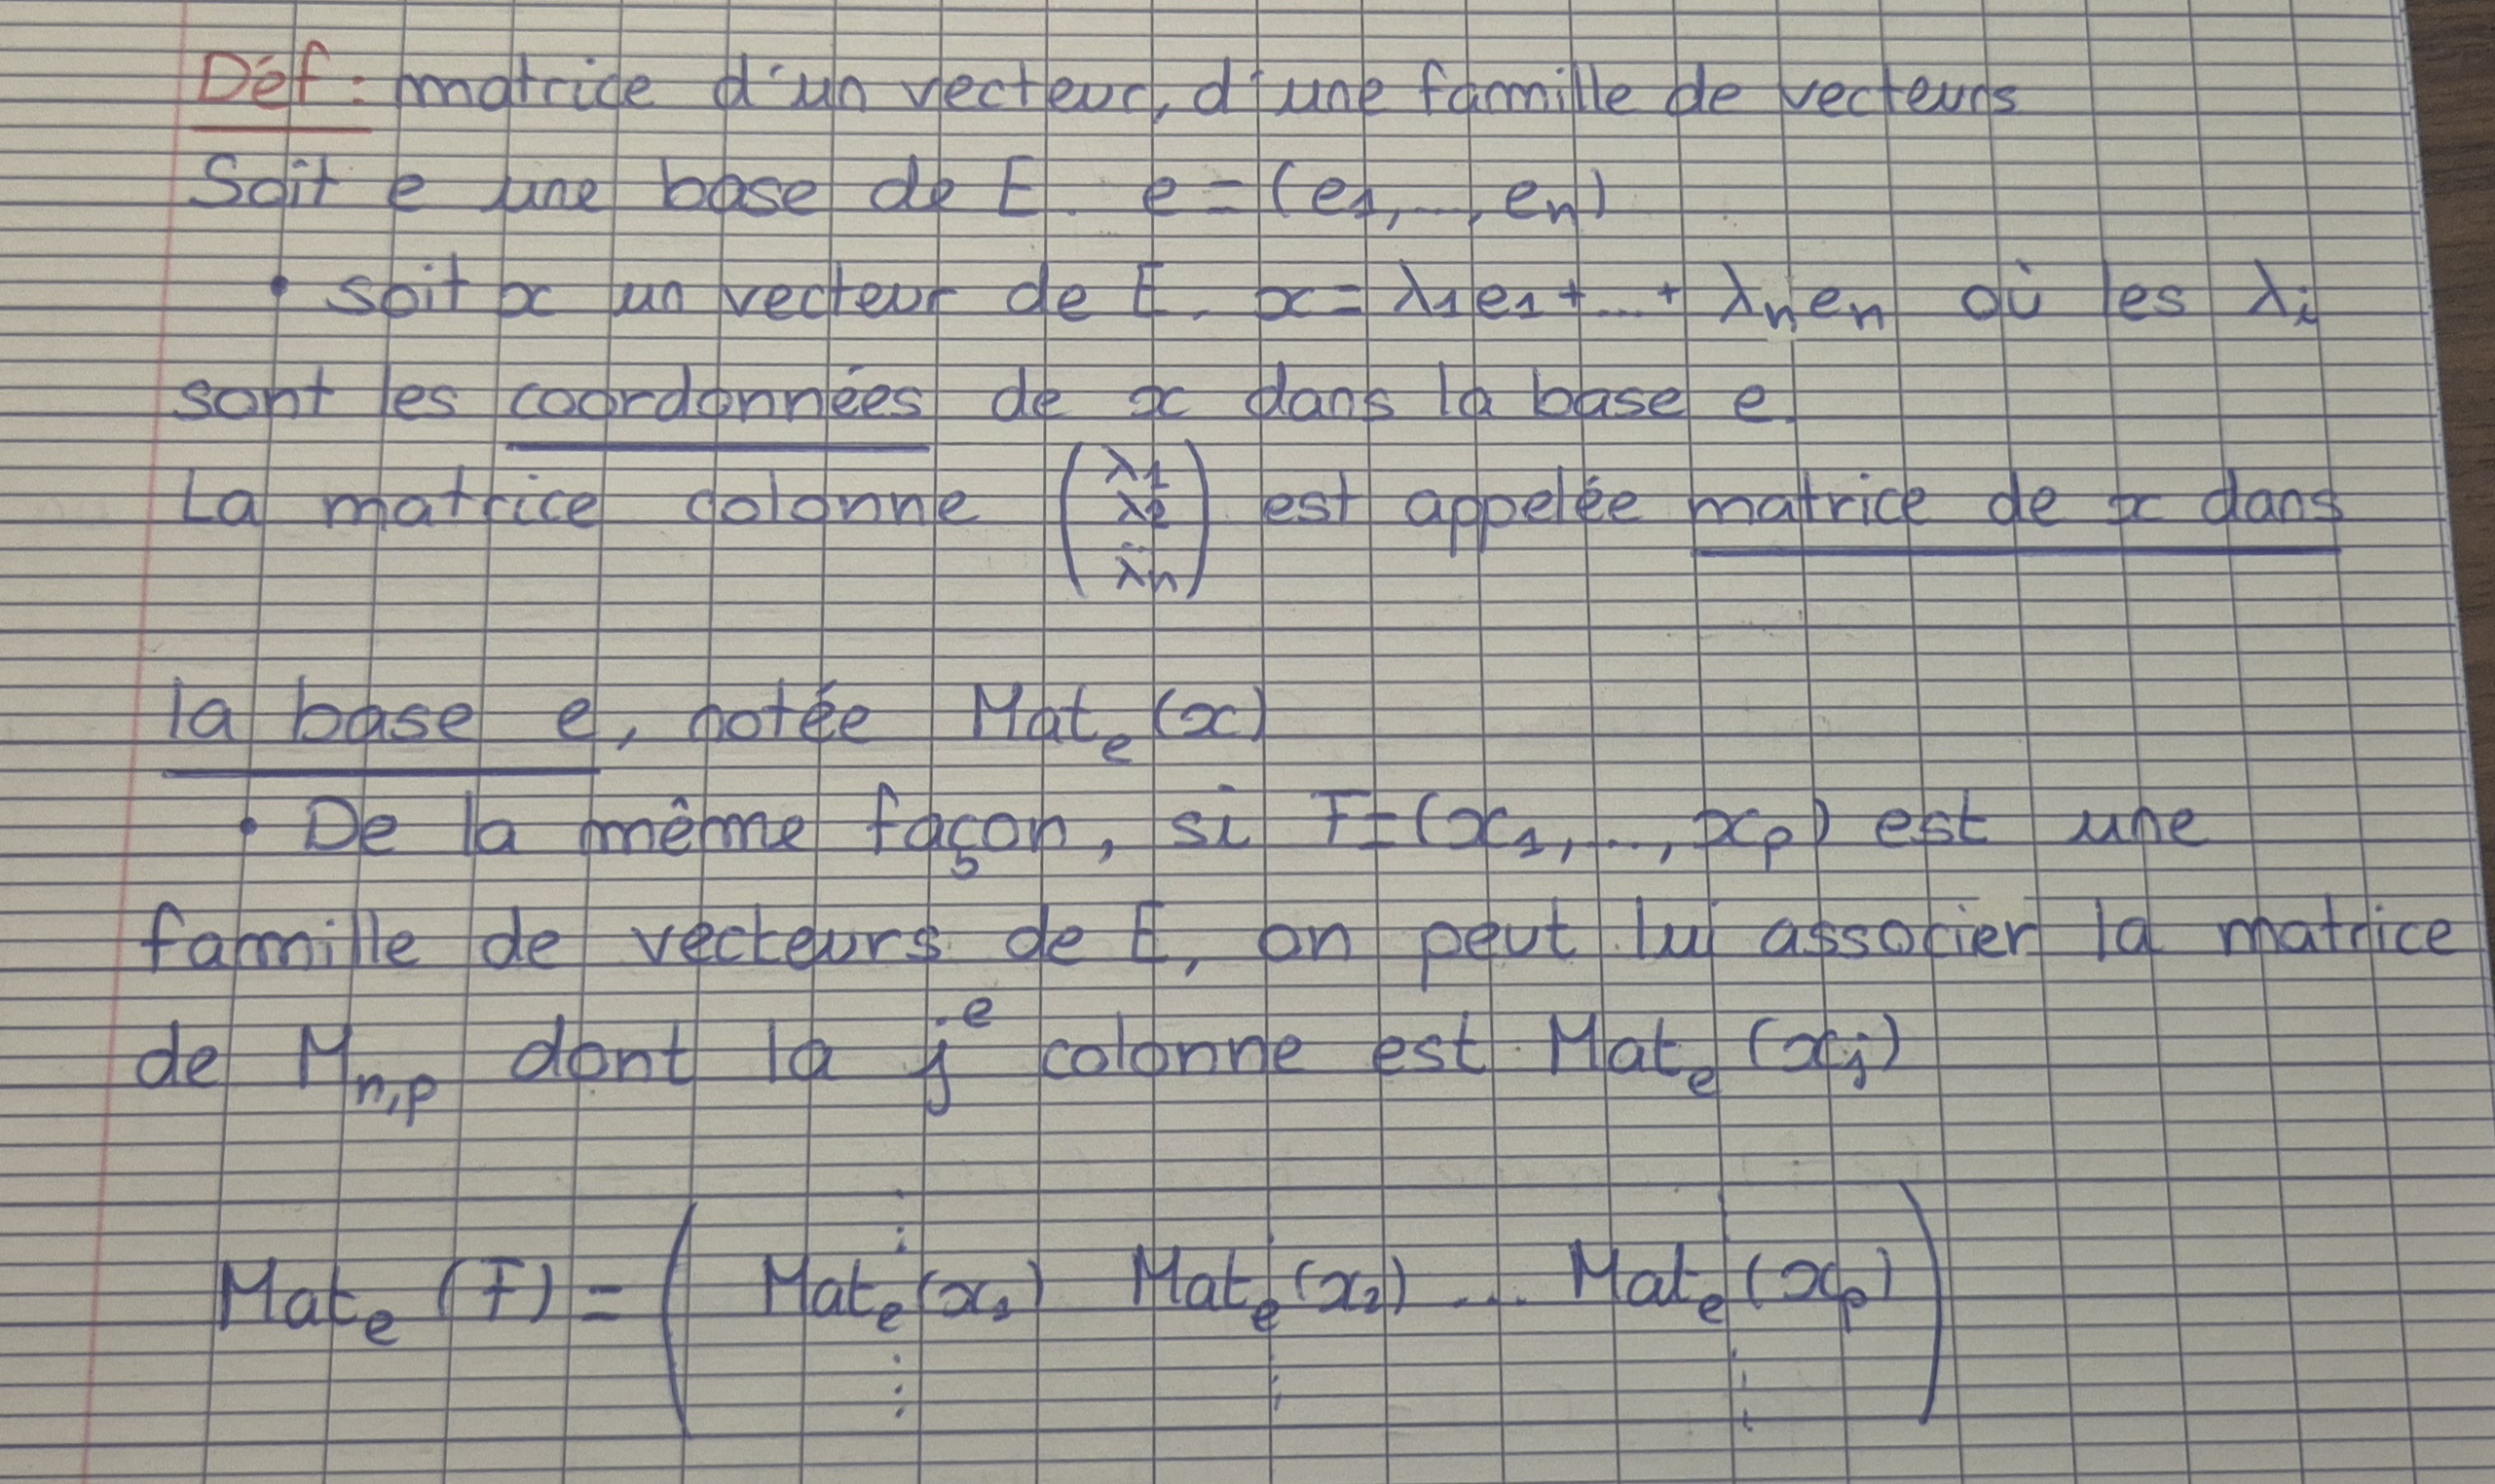 Déf : matrice d'un vecteur, d'une famille de vecteurs
Soit e une base de E. e = (e₁, ..., eₙ)
• soit x un vecteur de E. x = λ₁e₁ + ... + λₙeₙ où les λᵢ
sont les coordonnées de x dans la base e.
La matrice colonne (λ₁ λ₂ ... λₙ) est appelée matrice de x dans
la base e, notée Matₑ(x)
• De la même façon, si F = (x₁, ..., xₚ) est une
famille de vecteurs de E, on peut lui associer la matrice
de Mₙ,ₚ dont la jᵉ colonne est Matₑ(xⱼ)
Matₑ(F) = ( Matₑ(x₁) Matₑ(x₂) ... Matₑ(xₚ) )